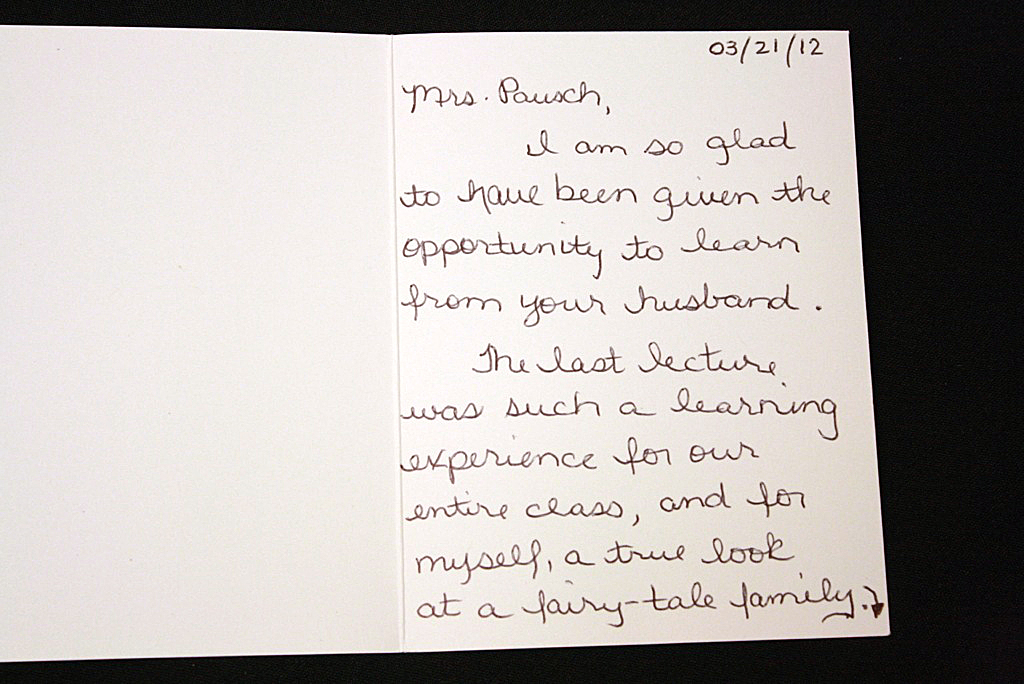 03/21/12
Mrs. Pausch,
I am so glad
to have been given the
opportunity to learn
from your husband.
The last lecture
was such a learning
experience for our
entire class, and for
myself, a true look
at a fairy-tale family.